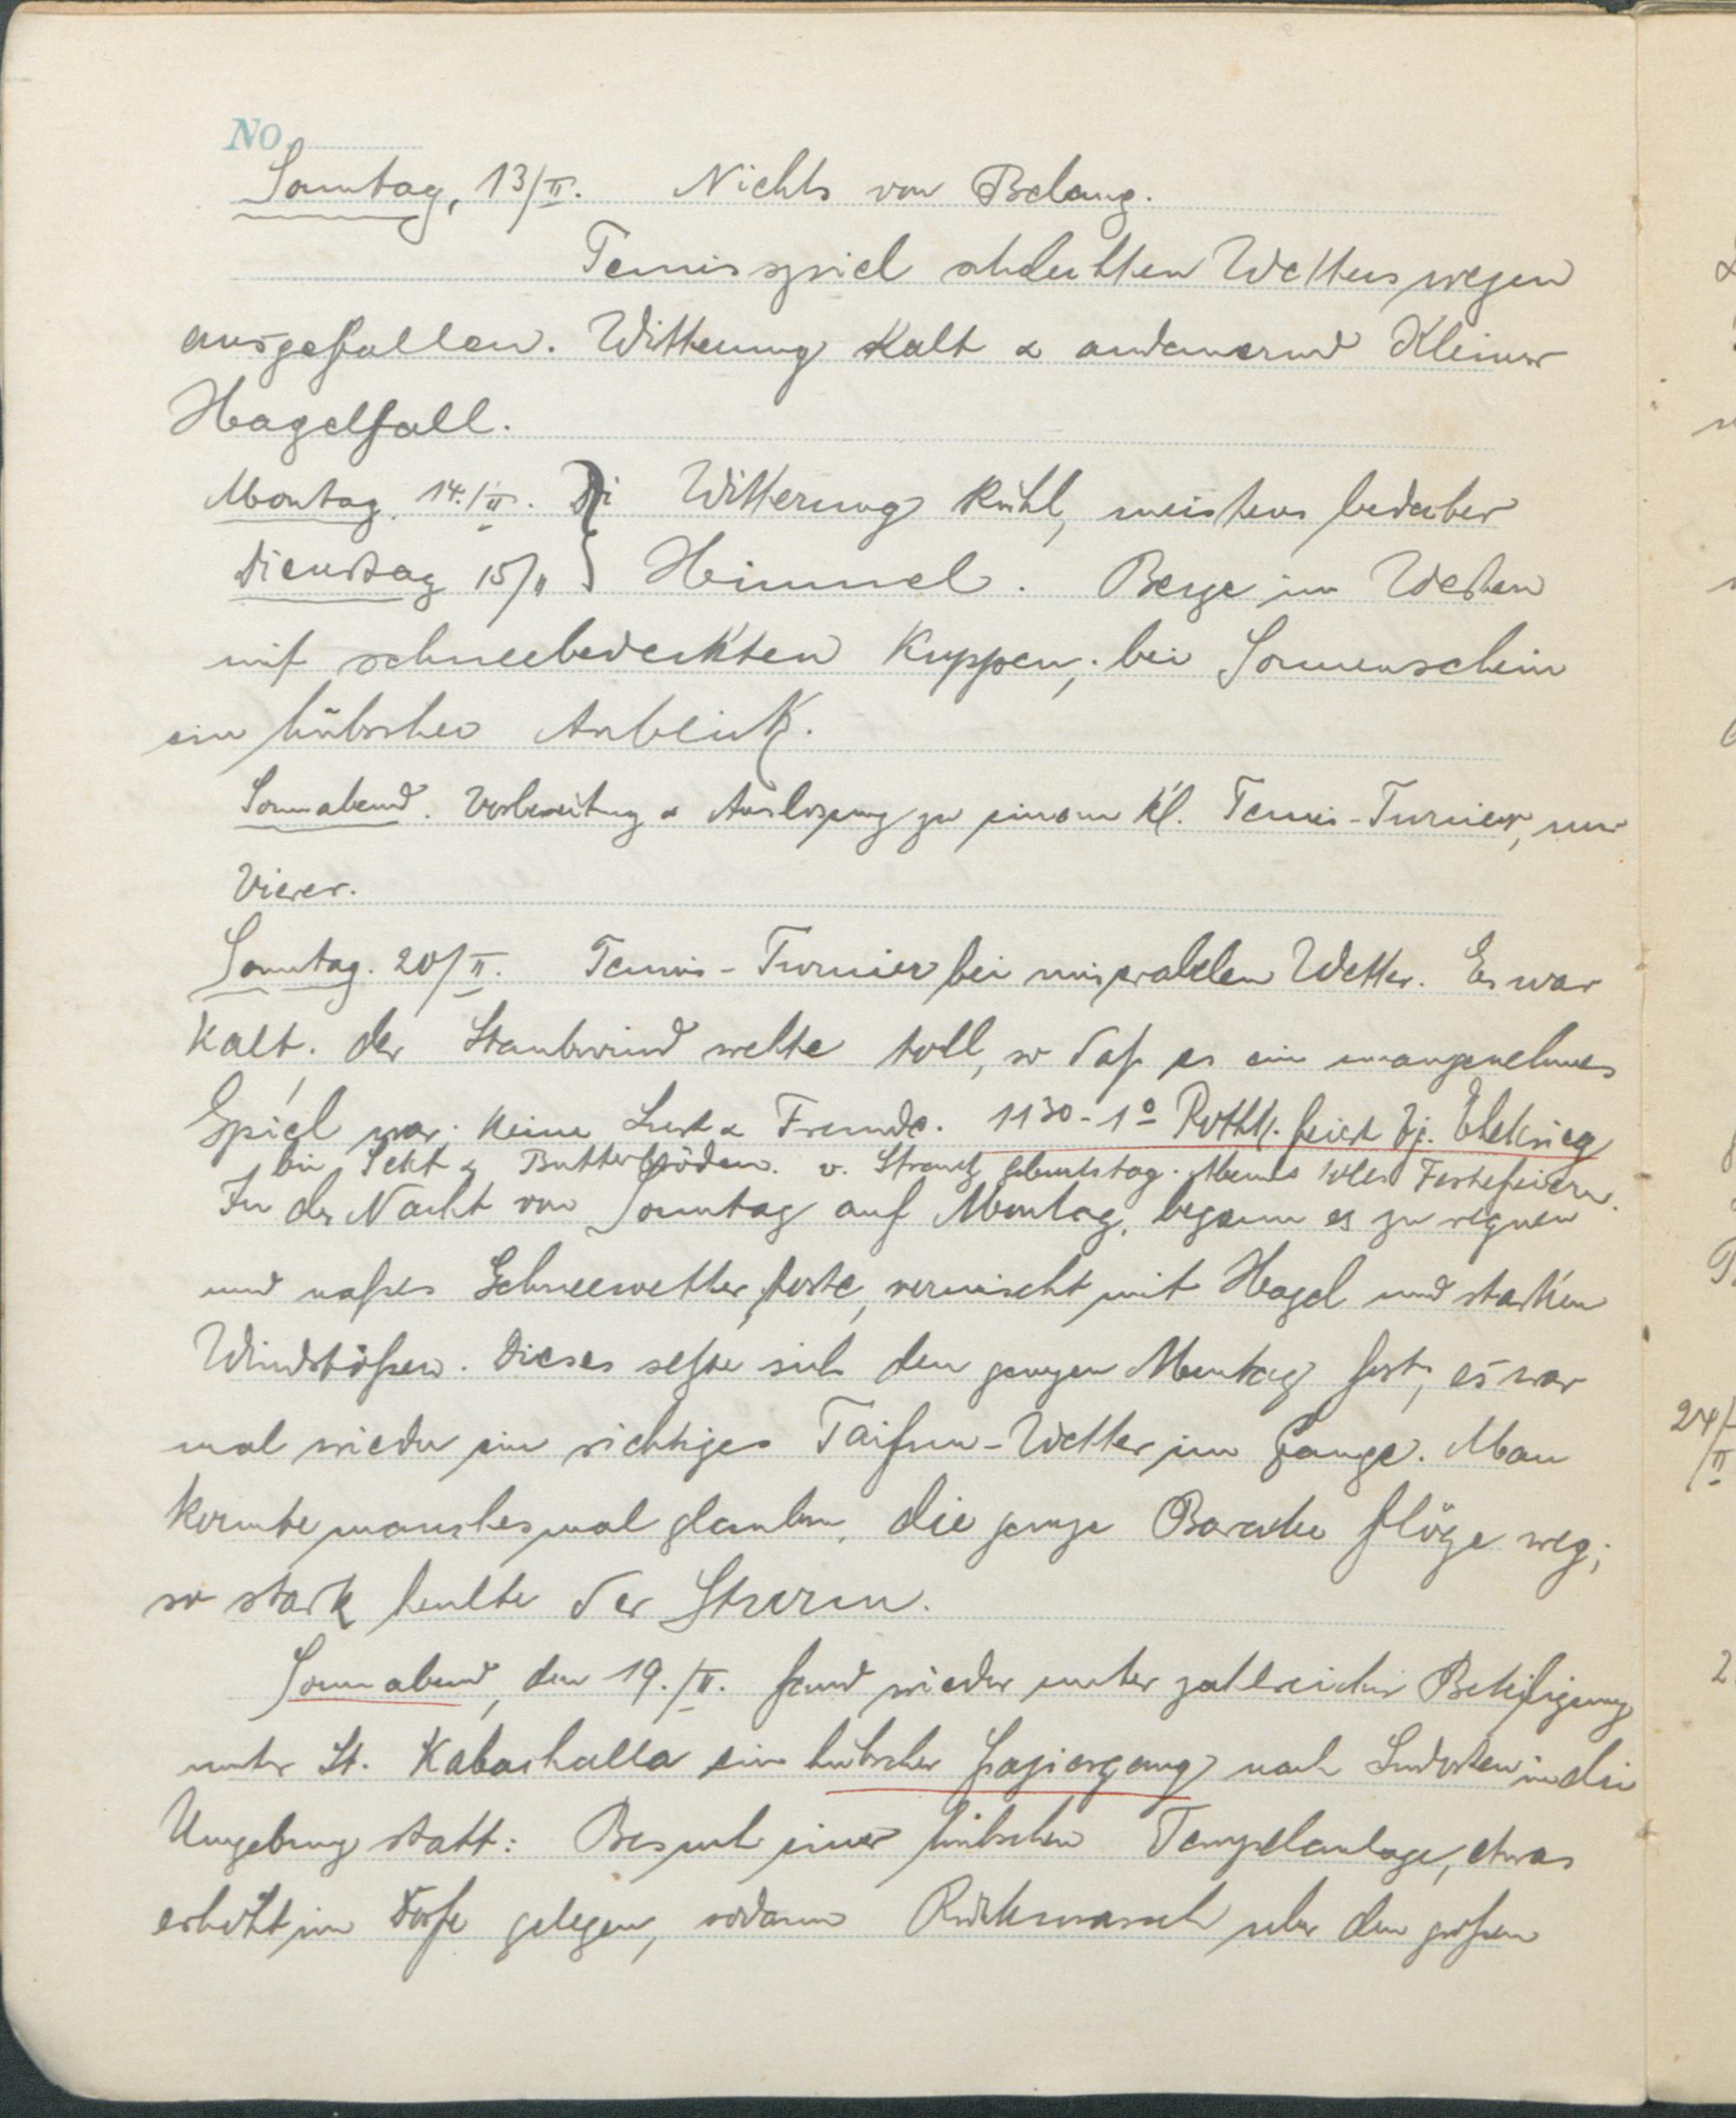 No.
Sonntag, 13/II. Nichts von Belang.
Tennisspiel schlechten Wetters wegen
ausgefallen. Witterung kalt & andauernd kleiner
Hagelfall.
Montag 14./II. Di Witterung kühl, meistens bedeckter
Dienstag 15/II } Himmel. Berge im Westen
mit schneebedeckten Kuppen, bei Sonnenschein
ein hübscher Anblick.
Sonnabend. Vorbereitung & Auslosung zu einem kl. Tennis-Turnier, nur
Vierer.
Sonntag. 20/II. Tennis-Turnier bei miserablem Wetter. Es war
kalt. der Staubwind wehte toll, so daß es ein unangenehmes
Spiel war. Keine Lust & Freude. 11 30 - 1 0 Rothk. feiert
bei Sekt & Butterbröden. v. Strantz Geburtstag. Abends Festefeiern.
In der Nacht von Sonntag auf Montag, begann es zu regnen
und naßes Schneewetter, vermischt mit Hagel und starken
Windstößen. Dieses setzte sich den ganzen Montag fort, es war
mal wieder ein richtiges Taifun-Wetter im Gange. Man
konnte manchesmal glauben, die ganze Baracke flöge weg;
so stark heulte der Sturm.
Sonnabend, den 19./II. fand wieder unter zahlreicher Beteiligung
unter Lt. ein hübscher Spaziergang nach Südosten in die
Umgebung statt: Besuch einer hübschen Tempelanlage, etwas
erhöht im Dorfe gelegen, sodann Rückmarsch über den großen
24/
II